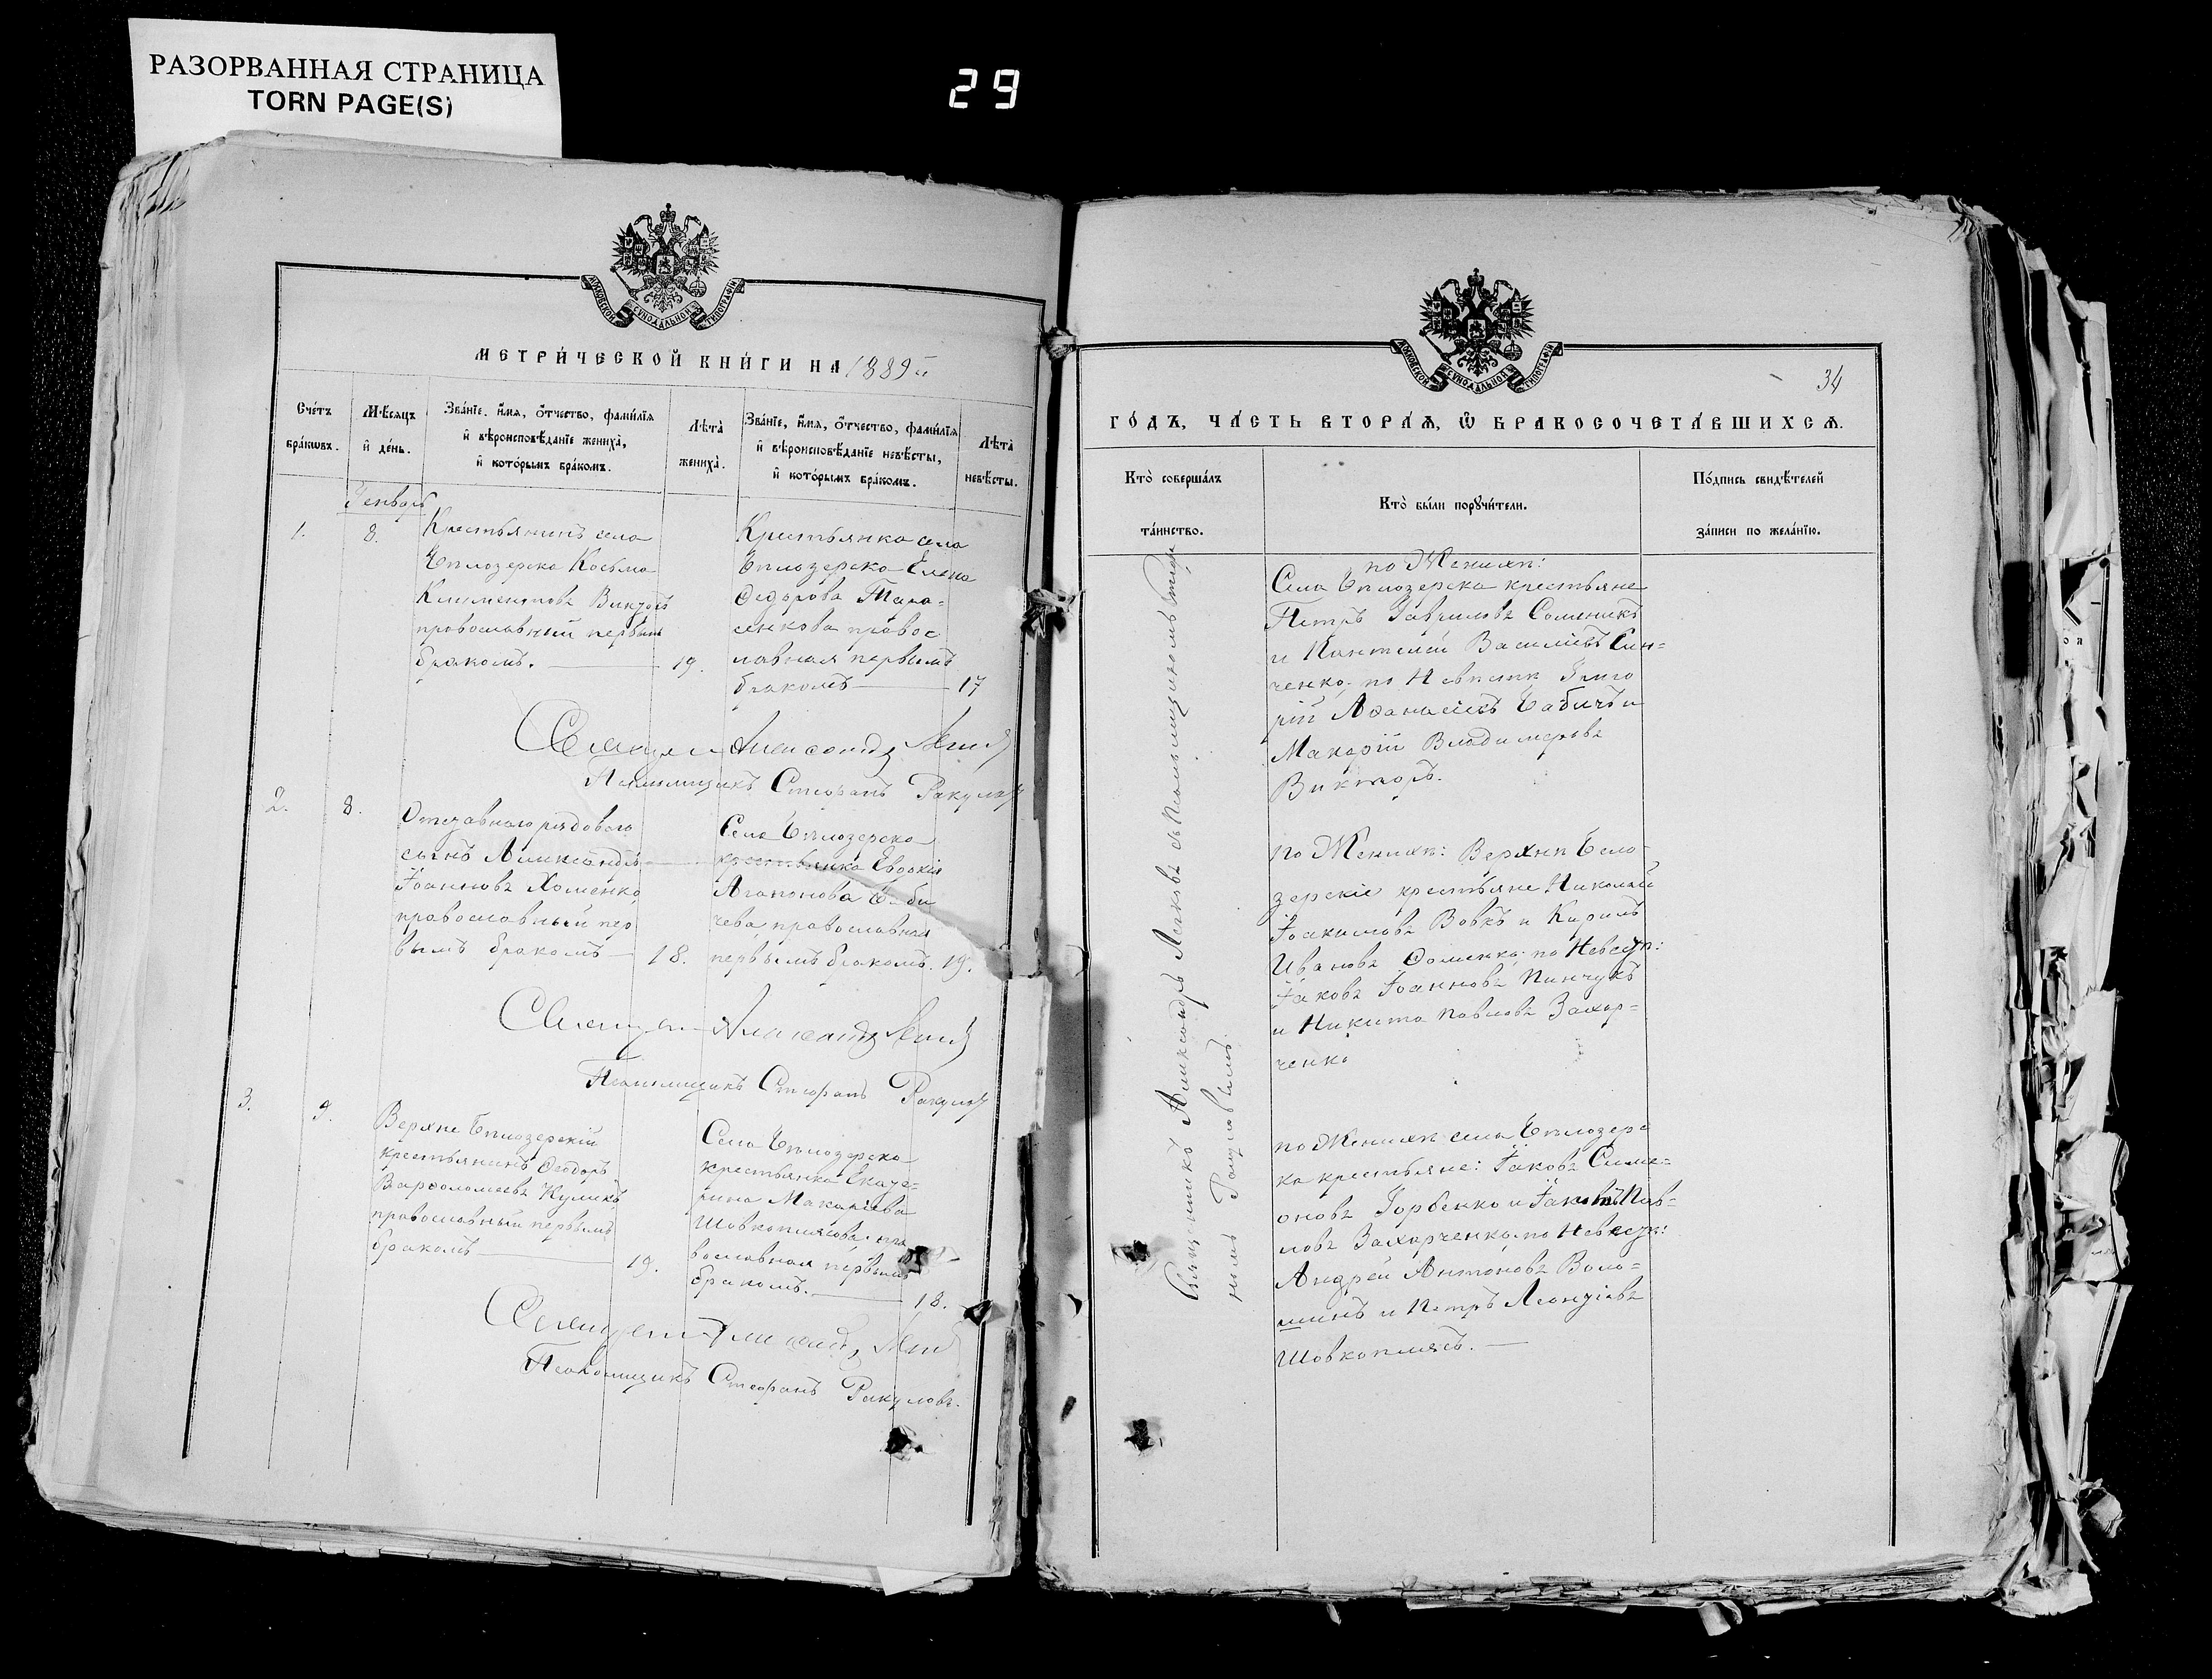 РАЗОРВАННАЯ СТРАНИЦА
TORN PAGE(S)
29
МОСКОВСКОЙ СѴНОДАЛЬНОЙ ТИПОГРАФІИ
МЕТРИ́ЧЕСКОЙ КНИ́ГИ НА 1889й
Сче́тъ бра́кѡвъ.
Мѣ́сяцъ и҆ де́нь.
Зва́нїе, и҆́мѧ, ѻ҆́тчество, фами́лїѧ и҆ вѣроисповѣ́данїе жениха̀, и҆ кото́рымъ бра́комъ.
Лѣ́та̀ жениха̀.
Зва́нїе, и҆́мѧ, ѻ҆́тчество, фами́лїѧ и҆ вѣроисповѣ́данїе невѣ́сты, и҆ кото́рымъ бра́комъ.
Лѣ́та̀ невѣ́сты.
Генварь
1.
8.
Крестьянинъ села
Бѣлозерка Косьма
Климентовъ Викторъ
православный первымъ
бракомъ.
19.
Крестьянка села
Бѣлозерка Елена
Ѳедорова Тара-
сенкова правос
лавная первымъ
бракомъ
17
Священ Александръ
Псаломщикъ Стефанъ Ракуловъ
2.
8.
Отставнаго рядоваго
сынъ Александръ
Іоанновъ Хоменко,
православный пер
вымъ бракомъ
18.
Села Бѣлозерка
крестьянка Евдокія
Агапонова Баби
чева православная
первымъ бракомъ.
19.
Священ Александръ
Псаломщикъ Стефанъ Ракуловъ
3.
9.
Верхне Бѣлозерскій
крестьянинъ Ѳеодоръ
Варѳоломеевъ Куликъ,
православный первымъ
бракомъ
19.
Села Бѣлозерка
крестьянка Екате-
рина Макаріева
Шовкоплясова пра
вославная первымъ
бракомъ.
18.
Священ Александръ
Псаломщикъ Стефанъ Ракуловъ.
МОСКОВСКОЙ СѴНОДАЛЬНОЙ ТИПОГРАФІИ
34
ГО́ДЪ, ЧА́СТЬ ВТОРА́Ѧ, Ѡ҆ БРАКОСОЧЕТА́ВШИХСѦ.
Кто̀ соверша́лъ та́инство.
Кто̀ бы́ли порꙋчи́тели.
По́дпись свидѣ́телей за́писи по жела́нїю.
Священникъ Александръ съ Псаломщикомъ Стефа
номъ Ракуловымъ.
по Женихѣ:
Села Бѣлозерка крестьяне
Петръ Гавриловъ
и Пантелей Василіевъ Син-
ченко; по Невѣстѣ Григо
рій Аѳанасіевъ Бабичъ и
Макарій Владимеровъ
Викторъ.
по Женихѣ: Верхнѣ Бело-
зерскіе крестьяне Николай
Іоакимовъ Вовкъ и Кирилъ
Ивановъ Ѳоменко; по Невестѣ:
Іаковъ Іоанновъ Пинчукъ
и Никита Павловъ Захар-
ченко
по Женихѣ села Бѣлозер
ка крестьяне: Іаковъ Симе-
оновъ Горбенко и Іаковъ Пав-
ловъ Захарченко; по Невестѣ:
Андрей Антоновъ Воло-
шинъ и Петръ Леонтіевъ
Шовкоплясъ.